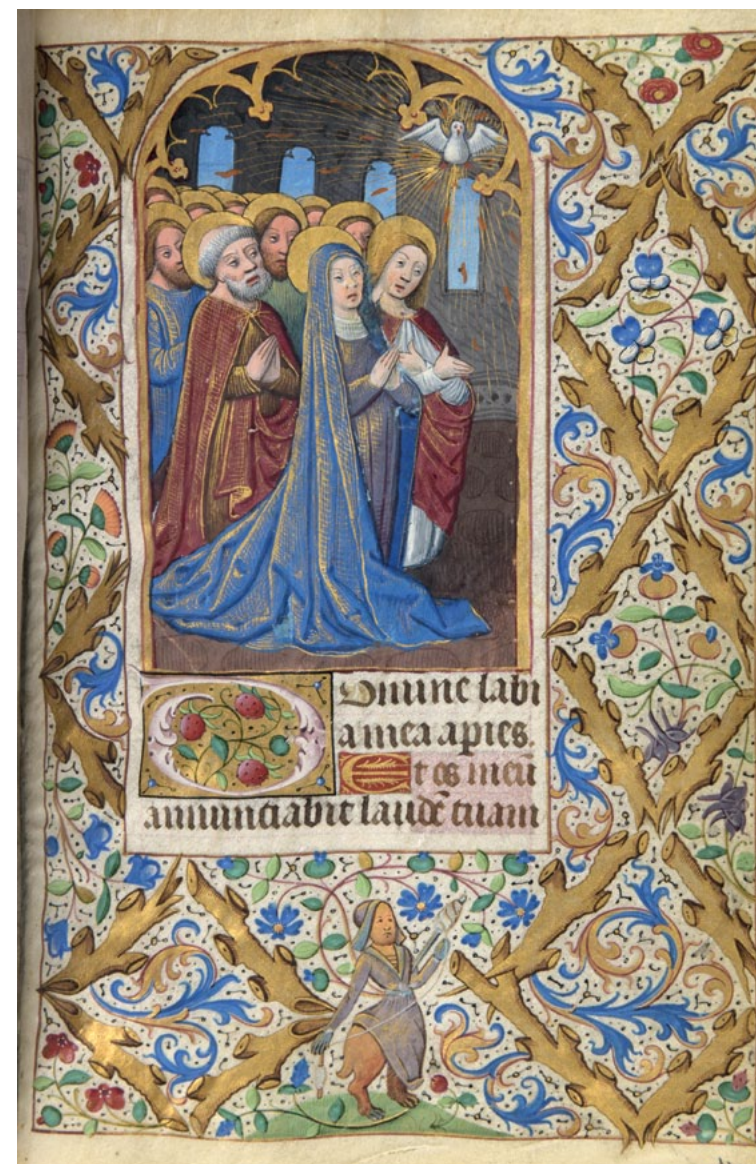 DOmine labi
a mea aꝑies.
Et os meū
annunciabit laudē tuam